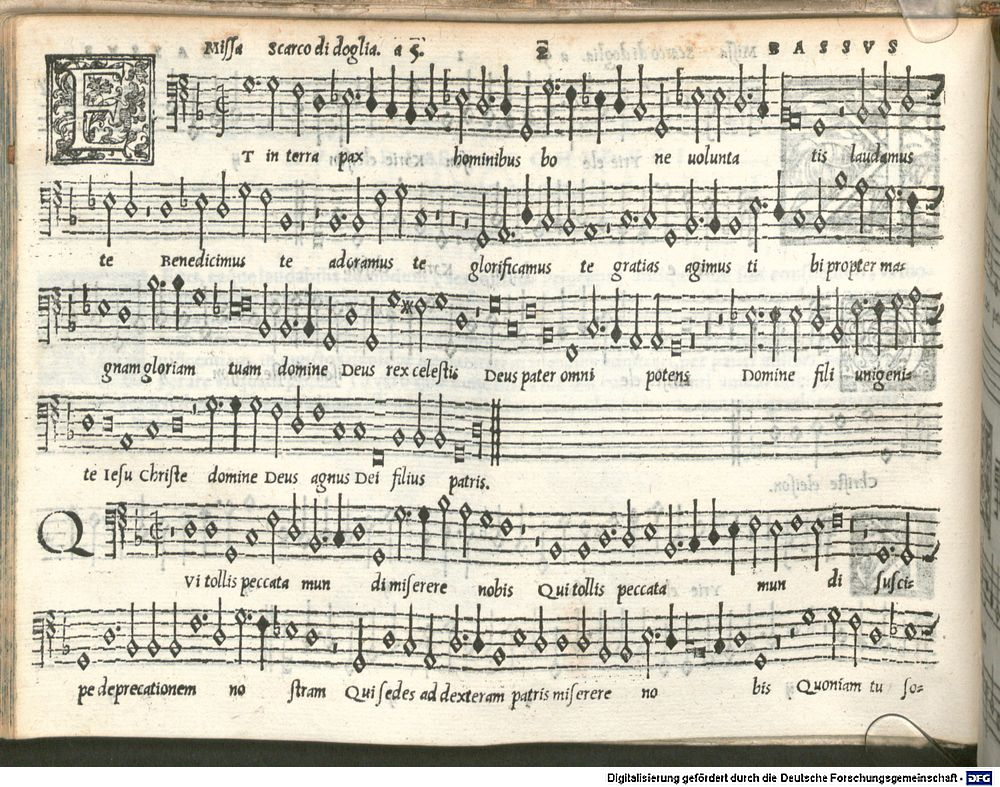 Missa Scarco di doglia. a 5. 2 BASSVS
ET in terra pax hominibus bo ne uolunta tis laudamus
te Benedicimus te adoramus te glorificamus te gratias agimus ti bi propter ma=
gnam gloriam tuam domine Deus rex celestis Deus pater omni potens Domine fili unigeni=
te Iesu Christe domine Deus agnus Dei filius patris.
QVi tollis peccata mun di miserere nobis Qui tollis peccata mun di susci=
pe deprecationem no stram Qui sedes ad dexteram patris miserere no bis Quoniam tu so=
Digitalisierung gefördert durch die Deutsche Forschungsgemeinschaft - DFG